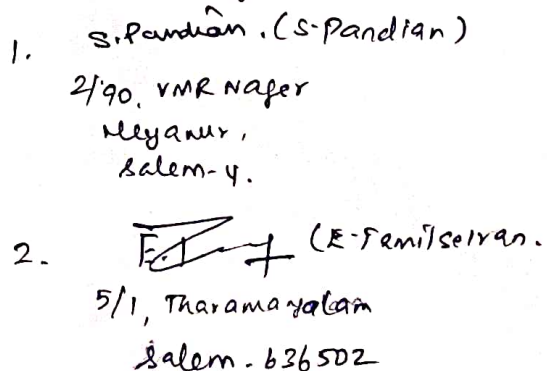 1. S.Pandian. (S-Pandian)
2/90, VMR Nager
Meyanur,
Salem-4.
2. (E-Tamilselvan.
5/1, Tharamayalam
Salem. 636502